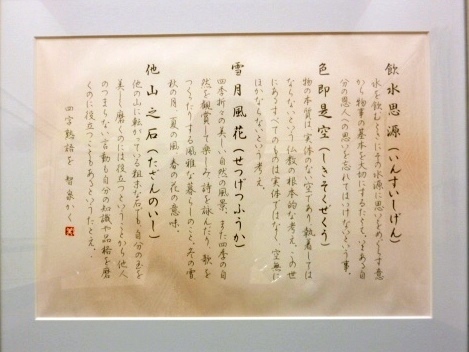 飲水思源(いんすいしげん)
水を飲むときにその水源に思いをめぐらす意
から物事の基本を大切にするたとえ。また自
分の恩人への思いを忘れてはいけないという事。
色即是空(しきそくぜくう)
物の本質は実体のない空であり執着しては
ならないという仏教の根本的な考え。この世
にあるすべてのものは実体ではなく、空無に
ほかならないという考え。
雪月風花(せつげつふうか)
四季折々の美しい自然の風景。また四季の自
然を観賞して楽しみ、詩を詠んだり、歌を
つくったりする風雅な暮らしのこと。冬の雪
秋の月、夏の風、春の花の意味。
他山之石(たざんのいし)
他の山に転がっている粗末な石でも自分の玉を
美しく磨くのには役立つということから他人
のつまらない言動も自分の知識や品格を磨
くのに役立つこともあるというたとえ。
四字熟語を